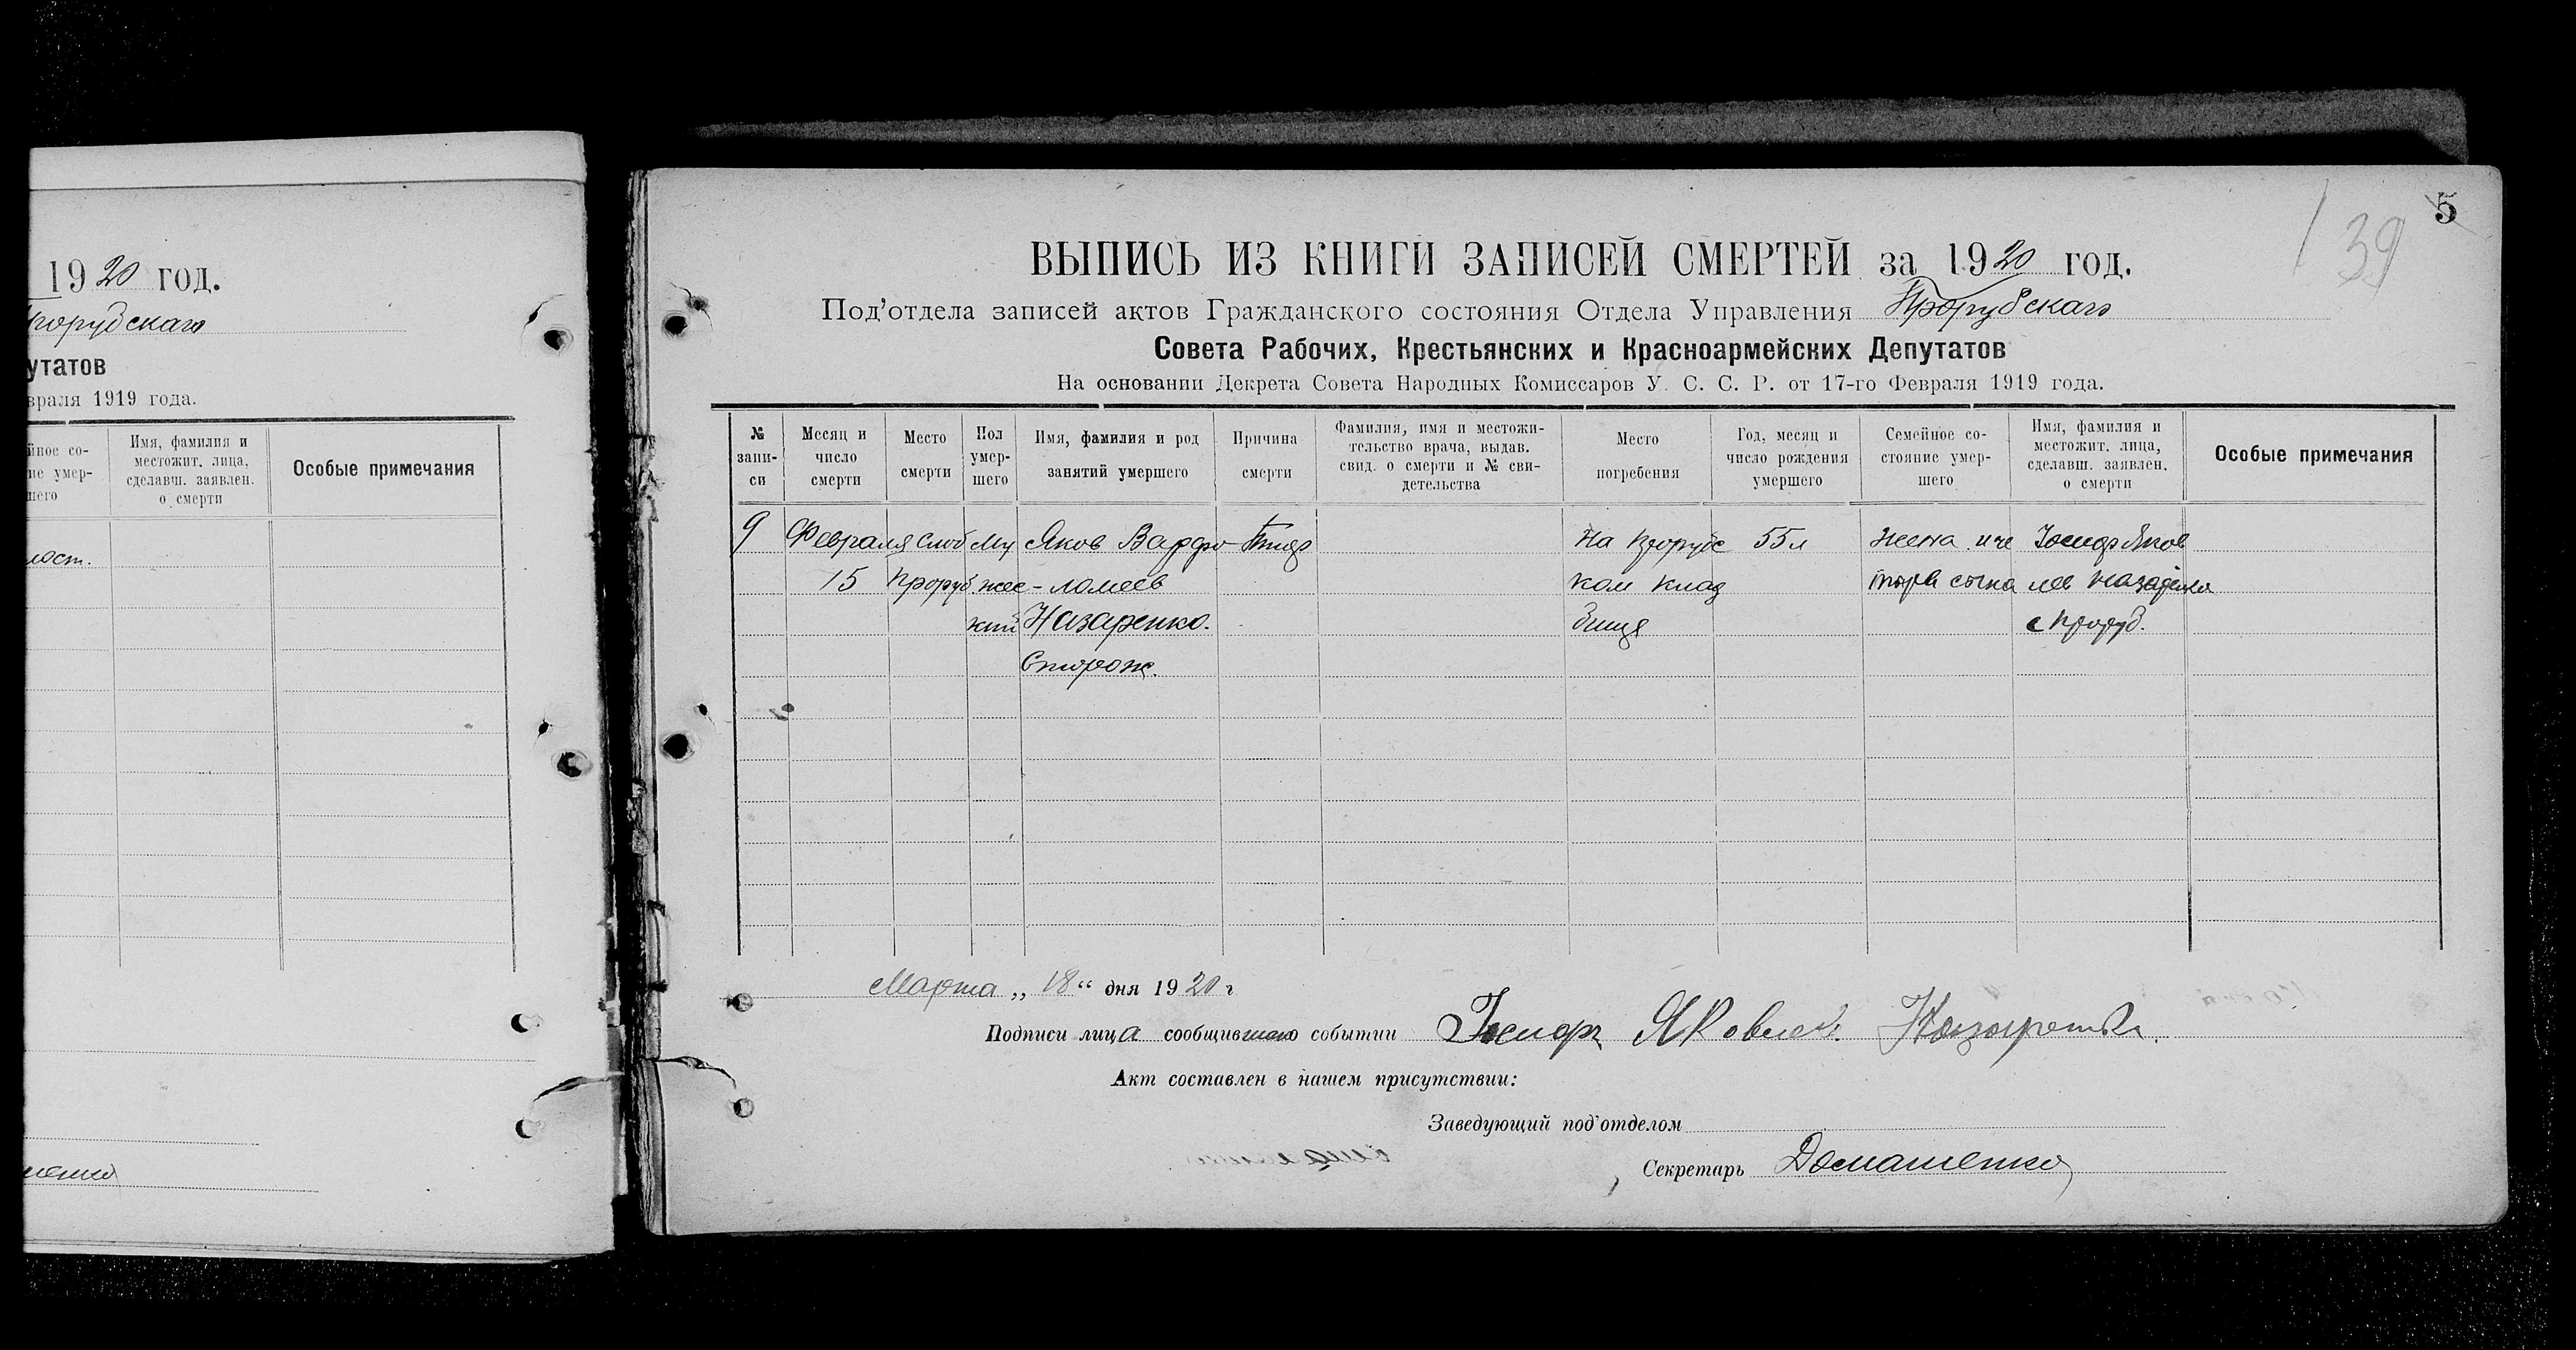 1920 год.
утатов
враля 1919 года.
йное со-
ие умер-
шего
Имя, фамилия и
местожит. лица,
сделавш. заявлен.
о смерти
Особые примечания
5
39
ВЫПИСЬ ИЗ КНИГИ ЗАПИСЕЙ СМЕРТЕЙ за 1920 год.
Под'отдела записей актов Гражданского состояния Отдела Управления Прорубскаго
Совета Рабочих, Крестьянских и Красноармейских Депутатов
На основании Декрета Совета Народных Комиссаров У. С. С. Р. от 17-го Февраля 1919 года.
№
запи-
си
Месяц и
число
смерти
Место
смерти
Пол
умер-
шего
Имя, фамилия и род
занятий умершего
Причина
смерти
Фамилия, имя и местожи-
тельство врача, выдав.
свид. о смерти и № сви-
детельства
Место
погребения
Год, месяц и
число рождения
умершего
Семейное со-
стояние умер-
шего
Имя, фамилия и
местожит. лица,
сделавш. заявлен.
о смерти
Особые примечания
9
Февраля
15
слоб
Проруб.
Му
жес-
кий
Яков Варфо-
ломеев
Назаренко.
Сторож.
Тиф
На Прорубс
ком клад
бище
55л
Жена и че
тыре сына
Іосиф Яков
лев Назаренко
с Проруб.
Марта „18“ дня 1920 г
Подписи лица сообщившаго событии Іосиф Яковлев. Назаренко.
Акт составлен в нашем присутствии:
Заведующий под'отделом
Секретарь Домашенко